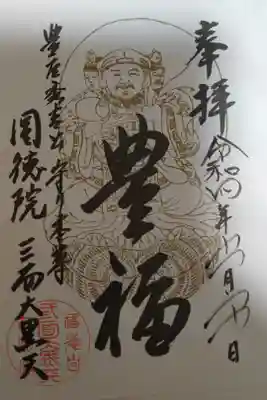 奉拝
令和四年 月 日
豊福
豊臣秀吉公守り本尊
圓徳院 三面大黒天